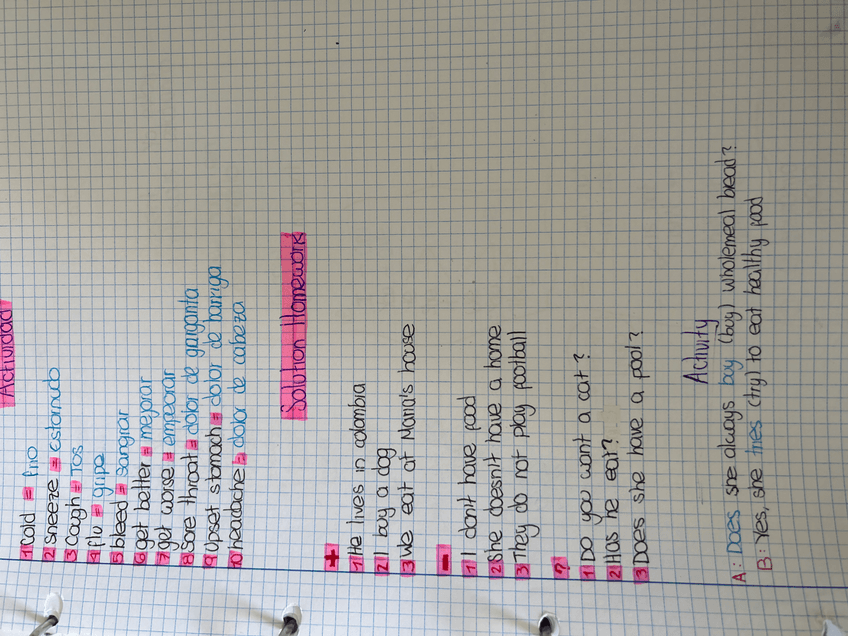 Actividad
1 Cold = frio
2 sneeze = estornudo
3 Cough = Tos
4 flu = gripe
5 bleed = sangrar
6 get better = mejorar
7 get worse = empeorar
8 Sore throat = dolor de garganta
9 Upset stomach = dolor de barriga
10 headache = dolor de cabeza
Solution Homework
+
1 He lives in colombia
2 I buy a dog
3 We eat at Maria's house
-
1 I don't have food
2 She doesn't have a home
3 They do not play football
?
1 Do you want a cat?
2 Has he eat?
3 Does she have a pool?
Activity
A: Does she always buy (buy) wholemeal bread?
B: Yes, she tries (try) to eat healthy food